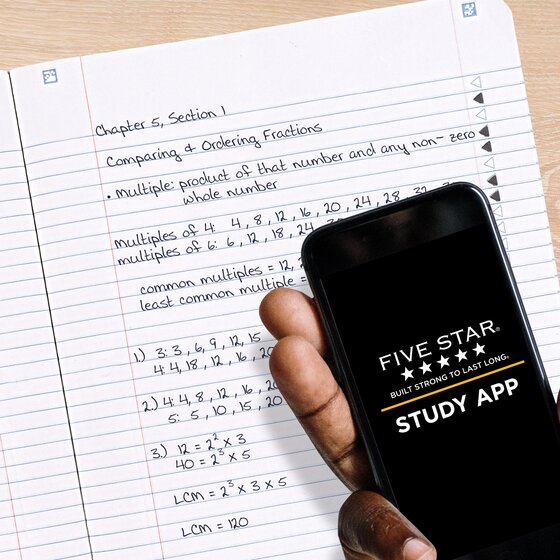 Chapter 5, Section 1
Comparing & Ordering Fractions
• Multiple: product of that number and any non-zero
whole number
multiples of 4: 4, 8, 12, 16, 20, 24, 28, 32,
multiples of 6: 6, 12, 18, 24,
common multiples = 12,
least common multiple =
1) 3: 3, 6, 9, 12, 15
4: 4, 18, 12, 16, 20
2) 4: 4, 8, 12, 16, 20
5: 5, 10, 15, 20
3.) 12 = 2² x 3
40 = 2³ x 5
LCM = 2³ x 3 x 5
LCM = 120
FIVE STAR®
BUILT STRONG TO LAST LONG.
STUDY APP